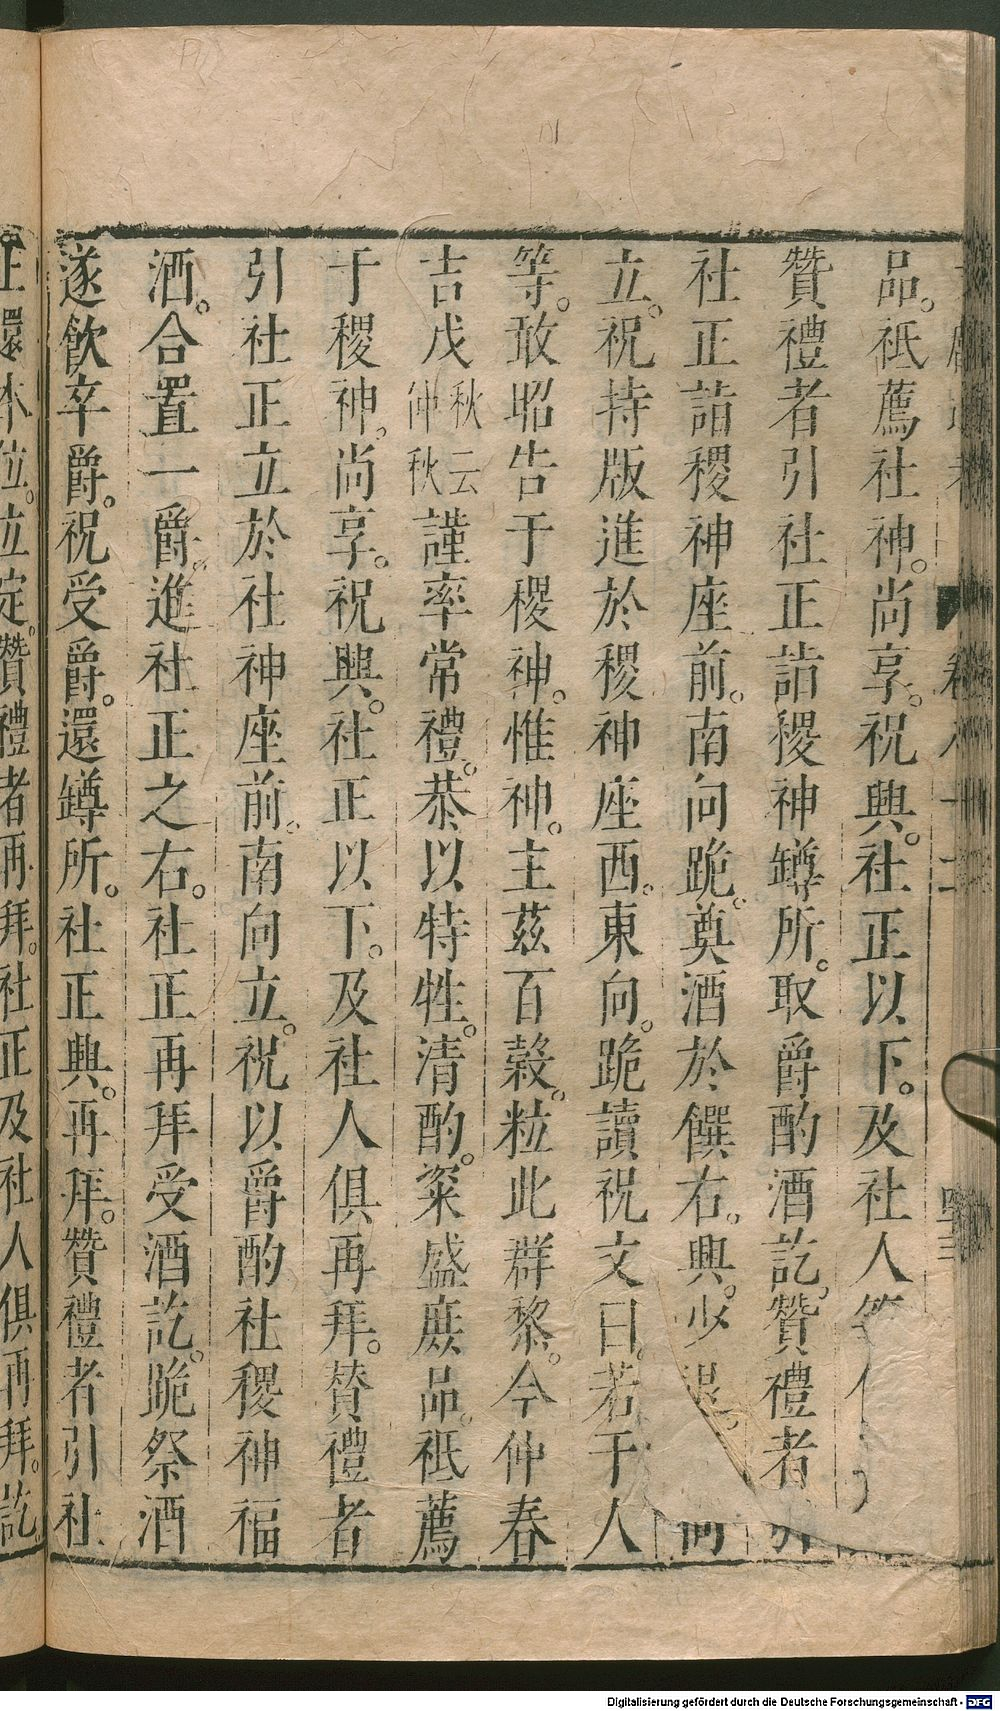 品。祗薦社神。尚享。祝興。社正以下。及社人等
贊禮者引社正詣稷神罇所。取爵酌酒訖。贊禮者引
社正詣稷神座前。南向跪。奠酒於饌右。興。少退。向
立。祝持版進於稷神座西。東向。跪讀祝文曰。若干人
等。敢昭告于稷神。惟神。主茲百穀。粒此群黎。今仲春
吉戊秋云仲秋謹率常禮。恭以特牲。清酌。粢盛庶品。祗薦
于稷神。尚享。祝興。社正以下。及社人俱再拜。贊禮者
引社正立於社神座前。南向立。祝以爵酌社稷神福
酒。合置一爵。進社正之右。社正再拜受酒訖。跪祭酒
遂飲卒爵。祝受爵。還罇所。社正興。再拜。贊禮者引社
正還本位。立定。贊禮者再拜。社正及社人俱再拜。訖。
Digitalisierung gefördert durch die Deutsche Forschungsgemeinschaft - DFG